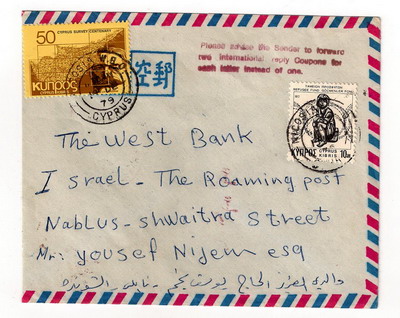 50
CYPRUS SURVEY CENTENARY
ΚΥΠΡΟΣ
NICOSIA
79
CYPRUS
郵
空
Please advise the Sender to forward
two international reply Coupons for
each letter instead of one.
REFUGEE FUND
ΚΥΠΡΟΣ CYPRUS KIBRIS 10
NICOSIA
The West Bank
Israel - The Roaming post
Nablus - shwaitra street
Mr: yousef Nijem esq